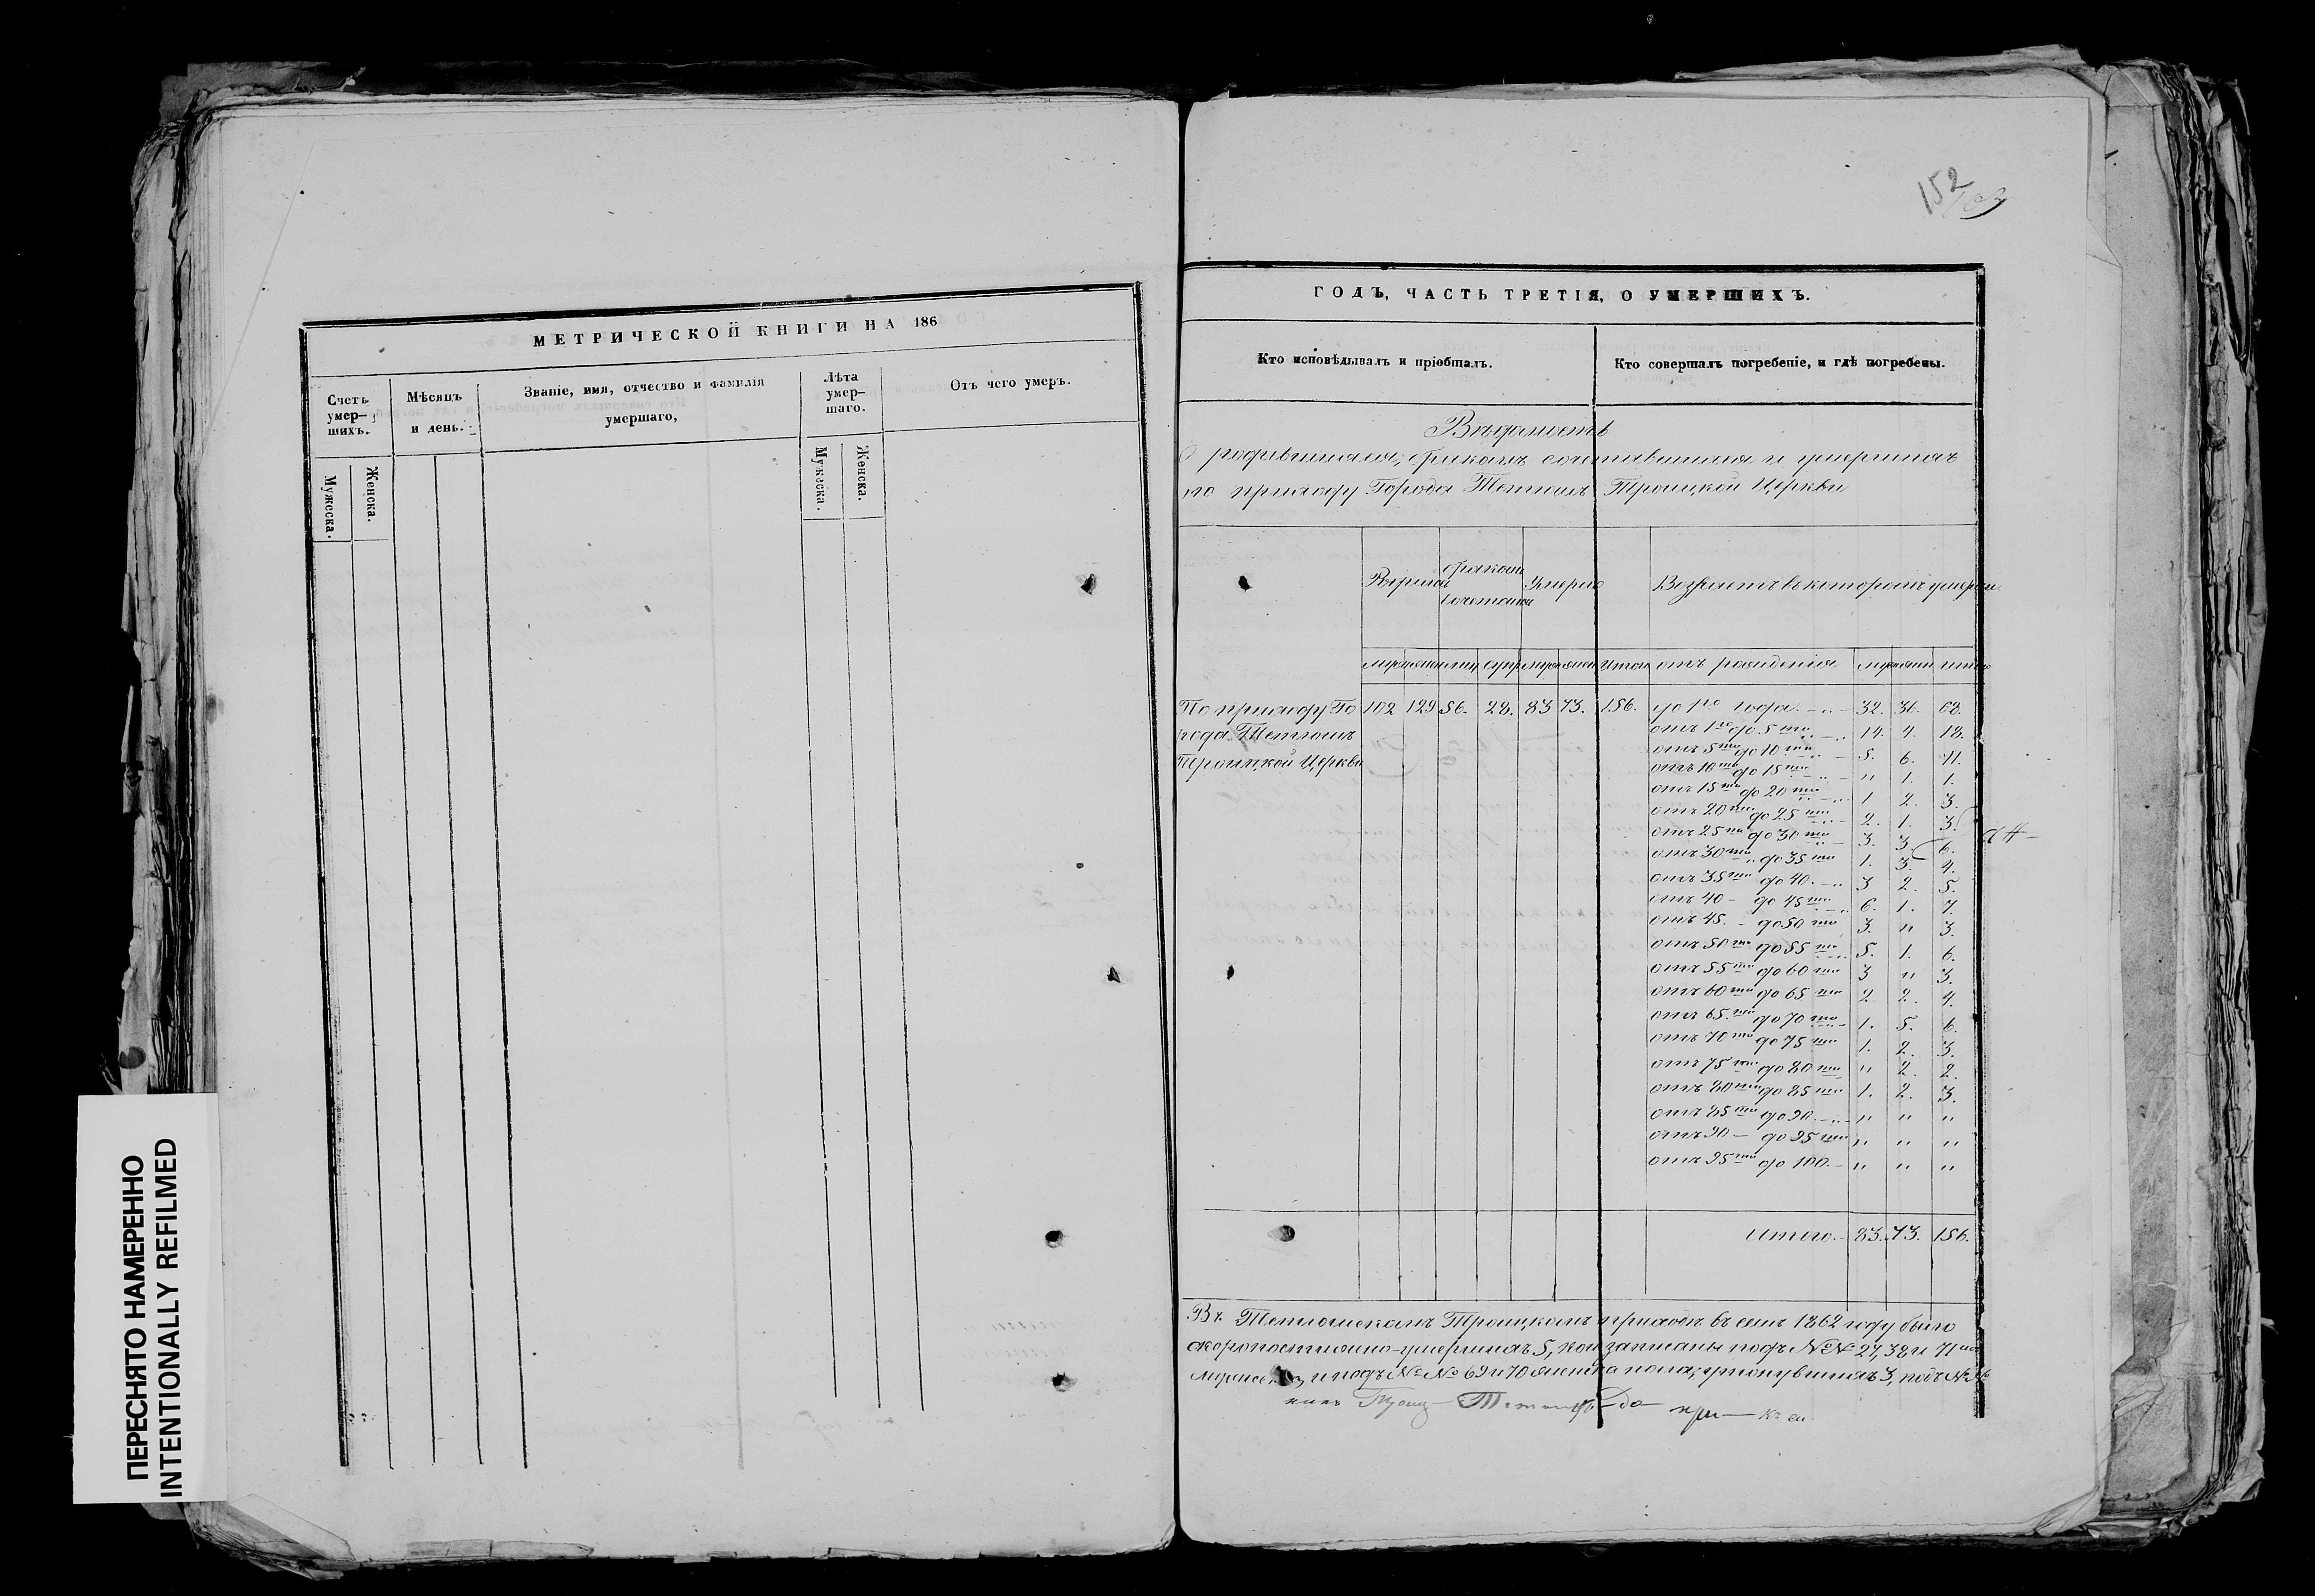 152
МЕТРИЧЕСКОЙ КНИГИ НА 186
Счетъ умер-шихъ.
Мужеска.
Женска.
Мѣсяцъ и день.
Званіе, имя, отчество и фамилія умершаго,
Лѣта умер-шаго.
Мужеска.
Женска.
Отъ чего умеръ.
ГОДЪ, ЧАСТЬ ТРЕТІЯ, О УМЕРШИХЪ.
Кто исповѣдывалъ и пріобщалъ.
Кто совершалъ погребеніе, и гдѣ погребены.
Вѣдомость
о родившихся, бракомъ сочетавшихся и умершихъ
по приходу Города Тетюшъ Троицкой Церкви
бракомъ
Умерло
Возрастъ въ которомъ умерли
отъ рожденія
По приходу Го 102 129 56. 28. 83 73. 156. до 1го года 32. 36. 68.
рода Тетюшъ отъ 1го до 5ти 14. 4. 18.
Троицкой Церкви отъ 5ти до 10ти 5. 6. 11.
отъ 10ти до 15ти " 1. 1.
отъ 15ти до 20ти 1 2. 3.
отъ 20ти до 25ти 2. 1. 3.
отъ 25ти до 30ти 3. 3. 6.
отъ 30ти до 35ти 1. 3. 4.
отъ 35ти до 40. 3 2. 5.
отъ 40 - до 45ти 6. 1. 7.
отъ 45. - до 50ти 3. " 3.
отъ 50ти до 55ти 5. 1. 6.
отъ 55ти до 60ти 3 " 3.
отъ 60ти до 65ти 2 2. 4.
отъ 65ти до 70ти 1. 5. 6.
отъ 70ти до 75ти 1. 2. 3.
отъ 75ти до 80ти " 2. 2.
отъ 80ти до 85ти 1. 2. 3.
отъ 85ти до 90. " " "
отъ 90 - до 95ти " " "
отъ 95ти до 100. " " "
Итого. 83. 73. 156.
Въ Тетюшскомъ Троицкомъ приходѣ въ семъ 1862 году было
скоропостижно-умершихъ 5, кои записаны подъ №№ 27, 38 и 71
и подъ №№ 69 и 70 женска пола; утонувшихъ 3, подъ
ПЕРЕСНЯТО НАМЕРЕННО
INTENTIONALLY REFILMED